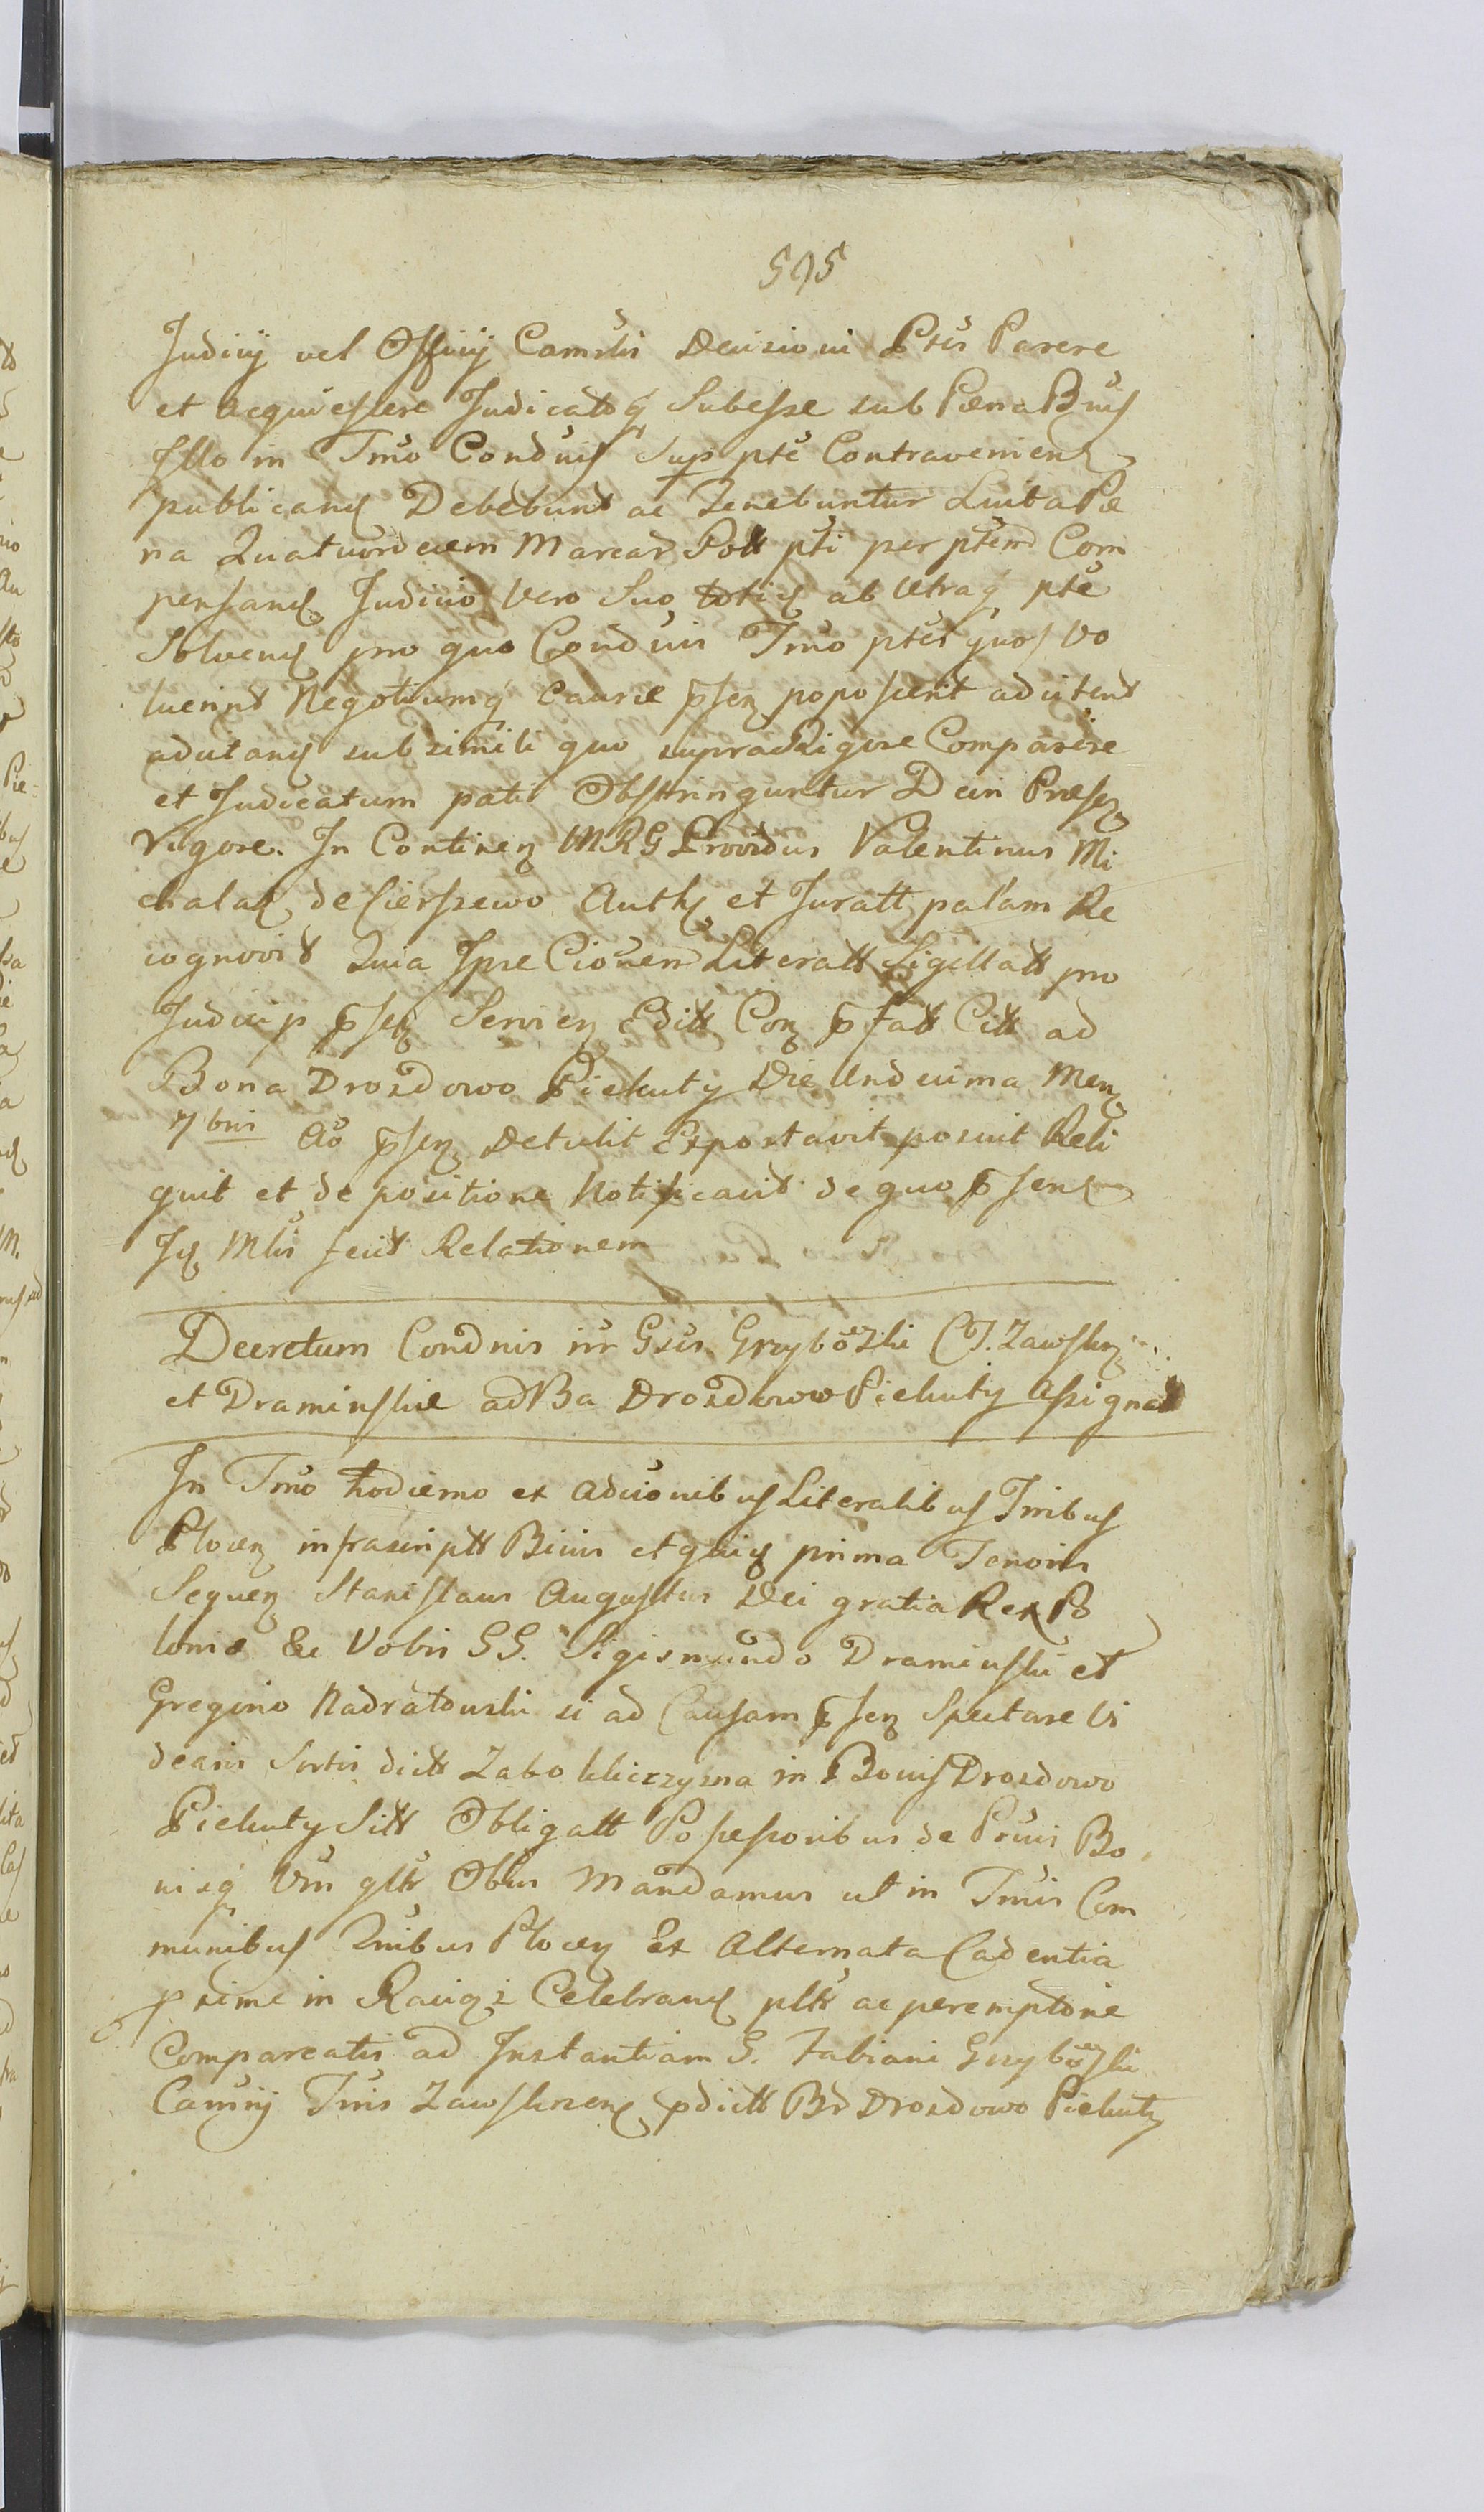 595
Judicij vel Officij Camrlis Decisioni Ptes Parere
et acquiescere Judicatoq Subesse sub Pœna Bnis
Illo in Tmo Condnis Sup pte Contravenien
publicand Debebunt ac Tenebuntur Luita Pœ
na Quatuordecim Marcar Poll pti per ptem Com
pensand Judicio Vero Suo toties ab Utraq pte
Solvend pro quo Condnis Tmo ptes quos vo
luerint Negotiumq Causæ pnsen poposcerit ad citand
adcitand sub simili quo supra Rigore Comparere
et Judicatum pati Obstringuntur Dcin Præsen
Vigore. In Continen MRG Providus Valentinus Mi
chalak de Cierszewo Auth et Juratt palam Re
cognovit Quia Ipse Cionem Literatt Sigillatt pro
Judicijs pnsen Servien Editt Con pfatt Citt ad
Bona Drozdowo Piehuty Die Undecima Men
7bris Ao pnsen Detulit Exportavit posuit Reli
quit et de positione Notificavit de quo pnsens
Jud Mlis fecit Relationem
Decretum Condnis inr Gsos Grzybowski C. T. Zawskrz
et Draminskie ad Ba Drozdowo Piekuty Assignat
In Tmo hodierno ex Adcionibus Literalibus Tmibus
Plocen infrascriptt Binis et quis prima Tenoris
Sequen Stanislaus Augustus Dei gratia Rex Po
loniæ &c Vobis GG. Sigismundo Draminski et
Gregorio Nadratowski si ad Causam pnsen Spectare Vi
deais Sortis dictt Zabokliczyzna in Bonis Drozdowo
Piekuty Sitt Obligatt Possessoribus de Prnis Bo
nisq Vris gltr Obus Mandamus ut in Tmis Com
munibus Tmibus Plocen Ex Alternata Cadentia
pxime in Raciąż Celebrand pltr ac peremptorie
Compareatis ad Instantiam G. Fabiani Grzybowski
Camrij Tmis Zawskrzen pdictt Br Drozdowo Piekuty